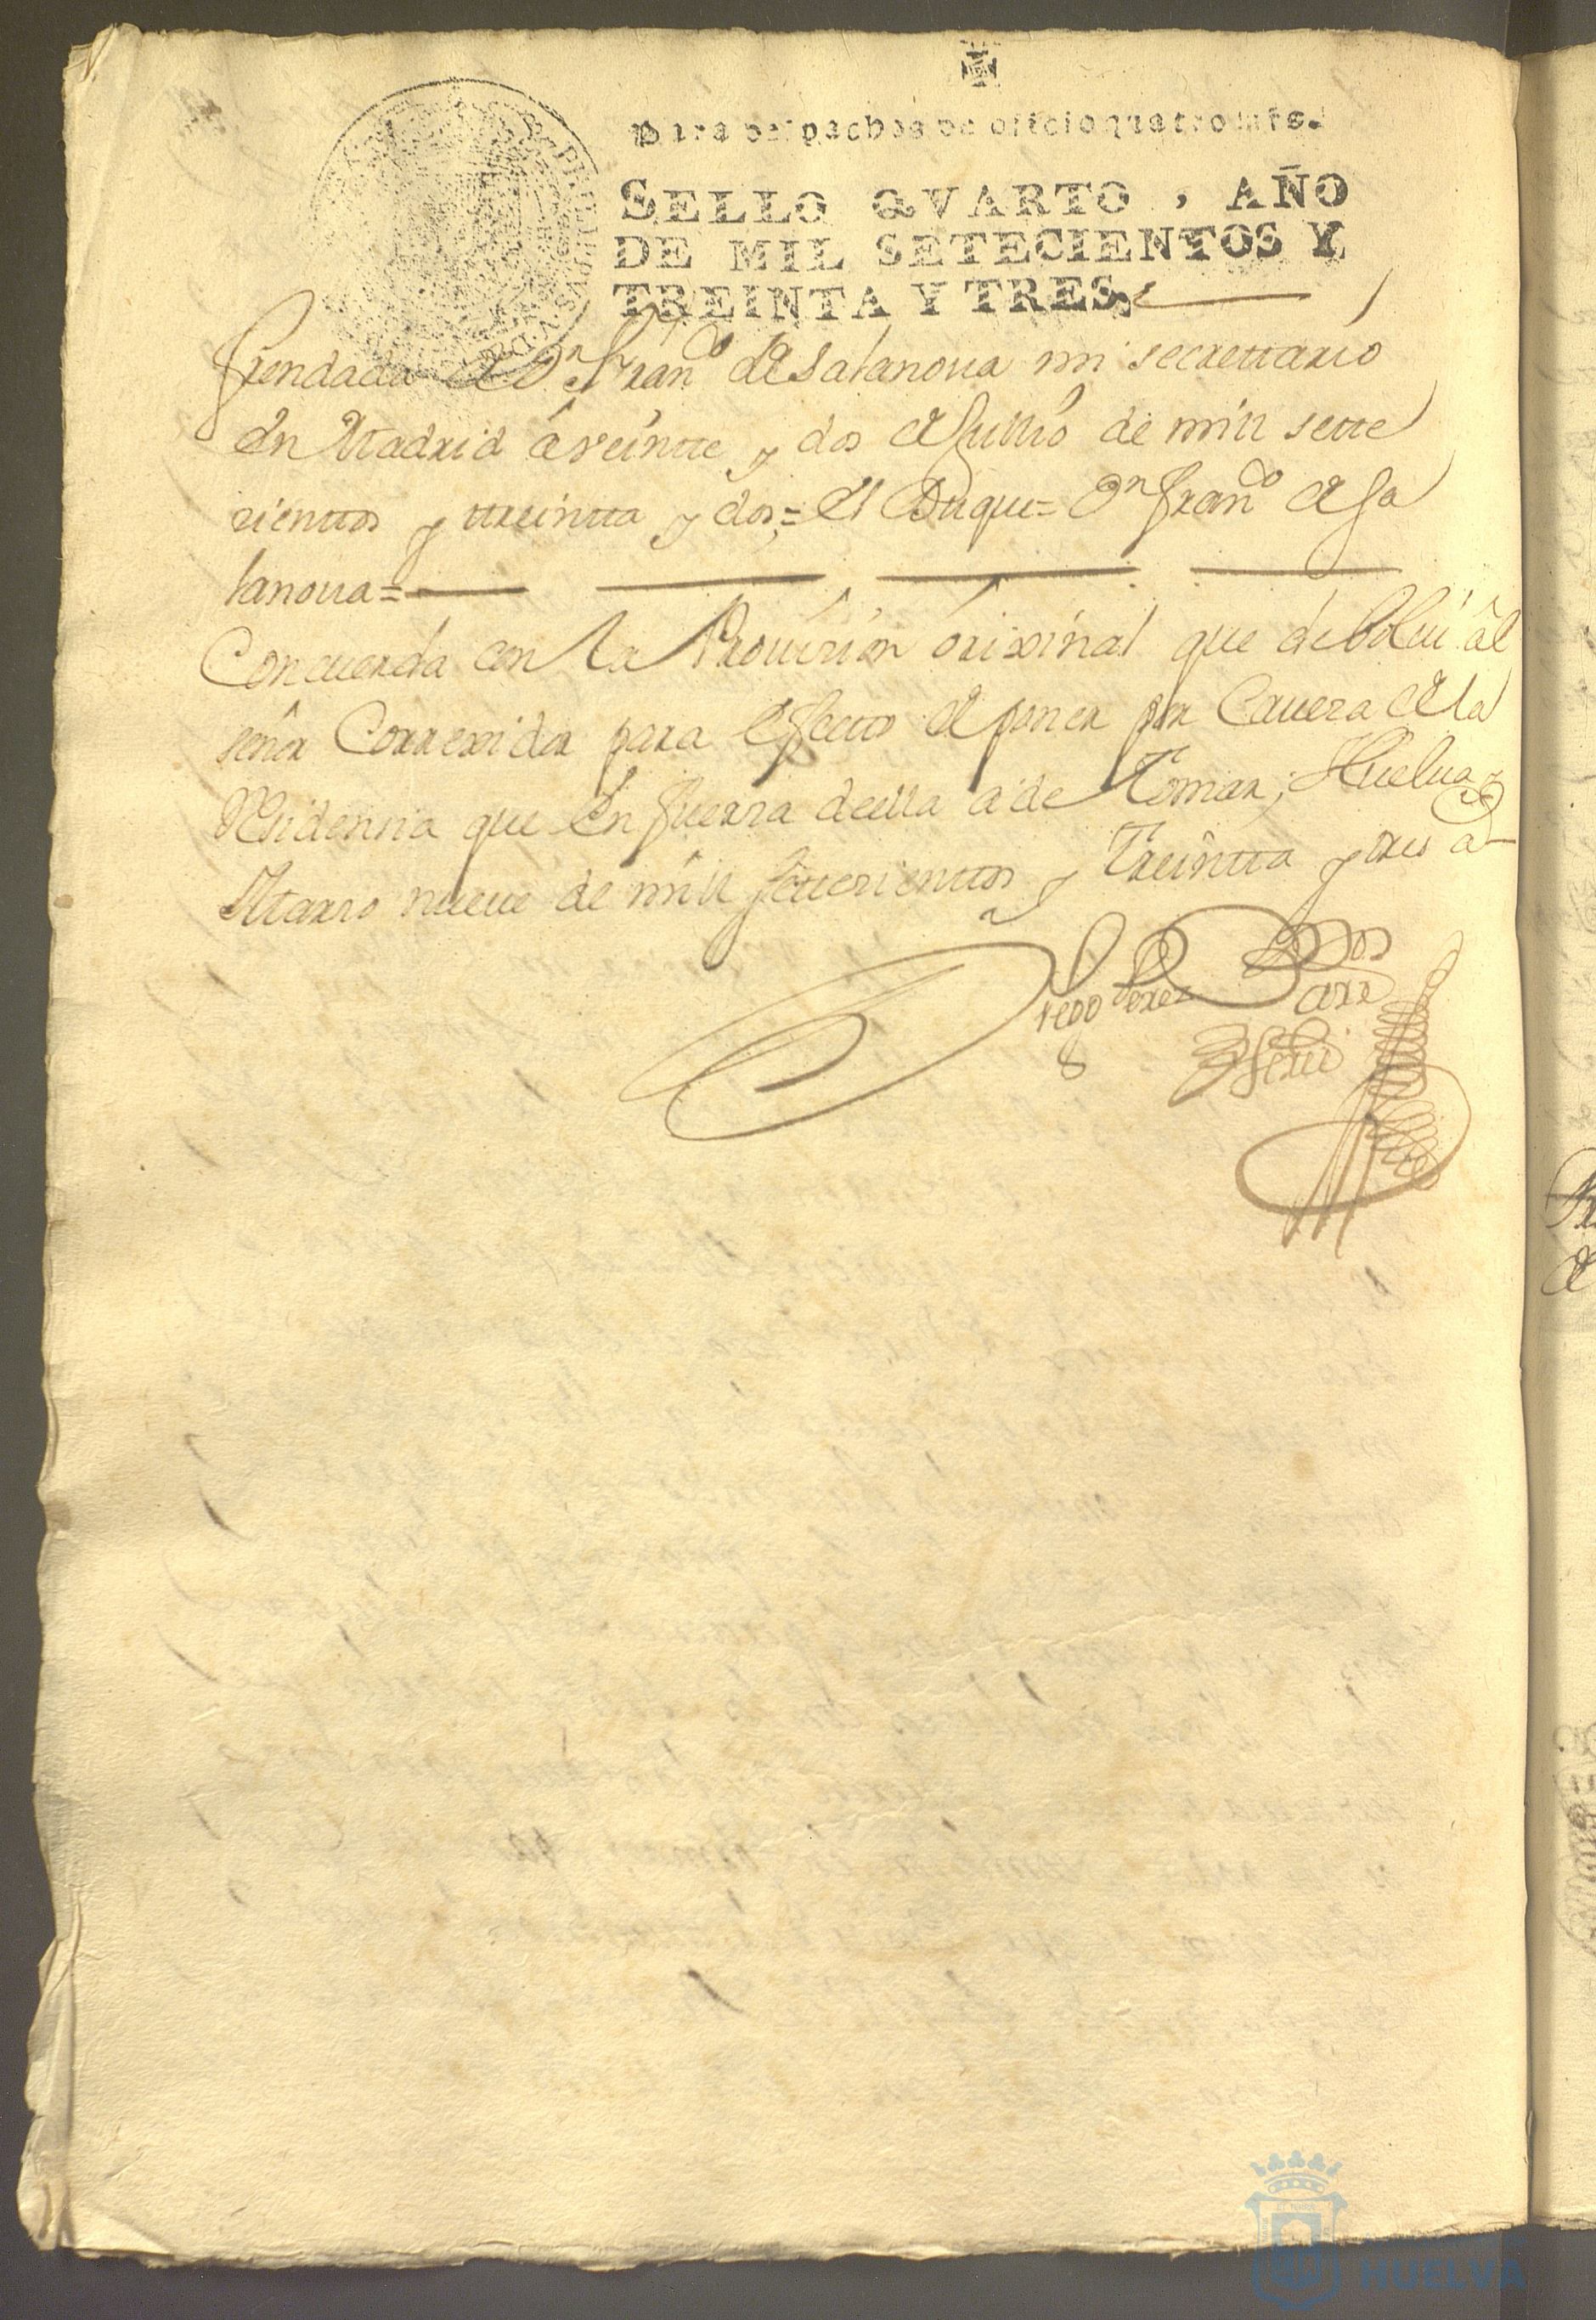 Para despachos de oficio quatro mrs.
SELLO QVARTO, AÑO
DE MIL SETECIENTOS Y
TREINTA Y TRES,
frendada de Dn. Franco de Salanoua mi secrettario
en Madrid à veintte y dos de Junio de mill sette
zienttos y ttreintta y dos,= el Duque= Dn franco de Sa
lanoua=
Concuerda con la Prouision orixinal que debolui àl
señor Correxidor para efectto de poner por Cauera de la
Residenzia que en fuerza della a de Tomar; Huelua y
Marzo nueue de mill settezienttos y Treintta y tres as
Diego Perez
HUELVA